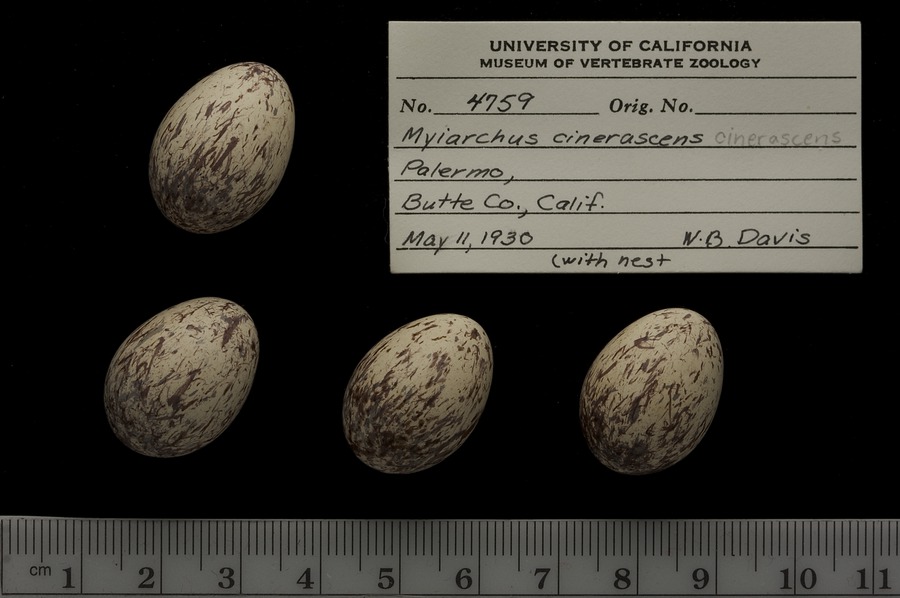 UNIVERSITY OF CALIFORNIA
MUSEUM OF VERTEBRATE ZOOLOGY
No. 4759 Orig. No.
Myiarchus cinerascens cinerascens
Palermo,
Butte Co., Calif.
May 11, 1930 W.B. Davis
(with nest
cm 1 2 3 4 5 6 7 8 9 10 11